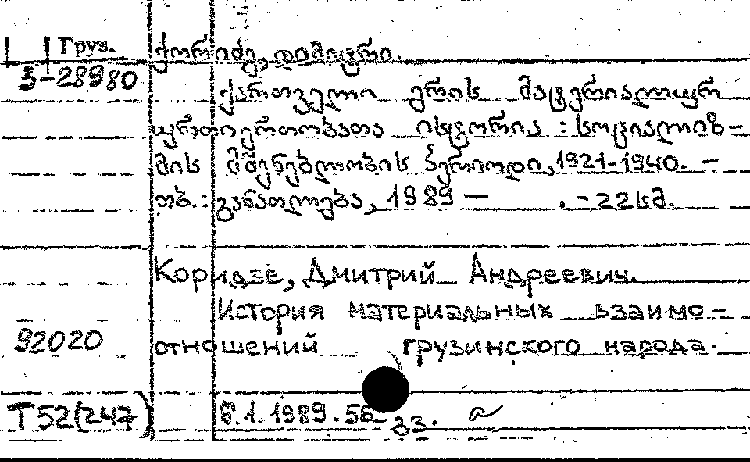 Груз. ქორიძე, დიმიტრი.
3-28980
ქართველი ერის მატერიალურ
ურთიერთობათა ისტორია : სოციალიზ-
მის მშენებლობის პერიოდი, 1921-1940. —
თბ. : განათლება, 1989 — . - 22 სმ.
Коридзе, Дмитрий Андреевич.
История материальных взаимо-
92020 отношений грузинского народа.
T52(247) 8.1.1989.56- გვ.